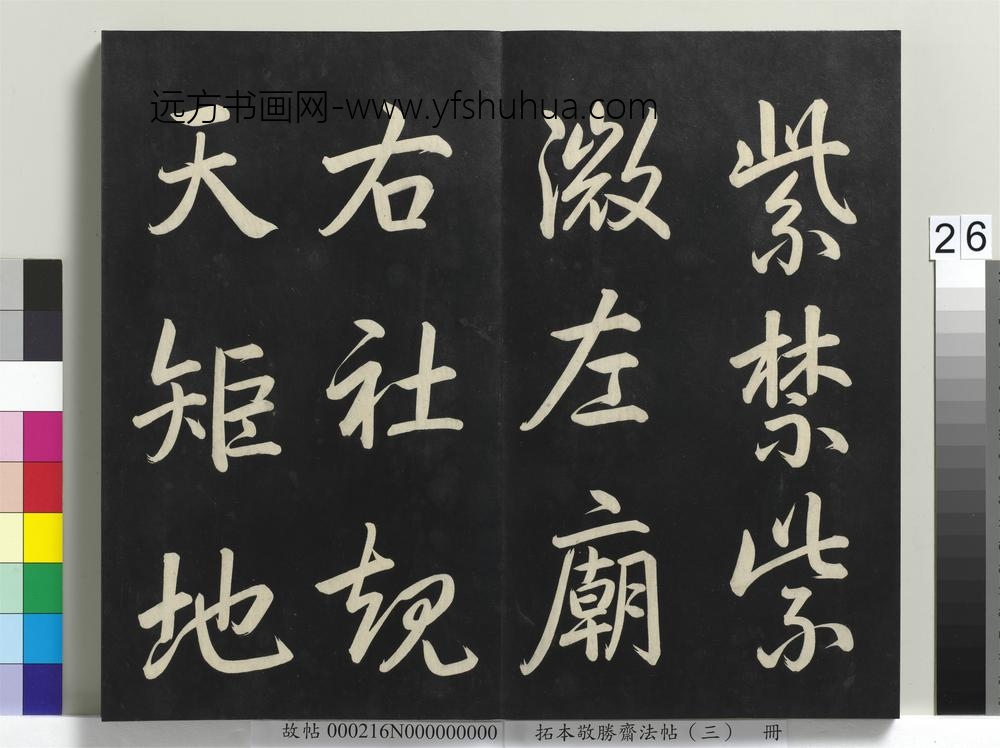 远方书画网-www.yfshuhua.com
紫禁紫
微左廟
右社規
天矩地
26
故帖 000216N000000000 拓本敬勝齋法帖(三) 冊